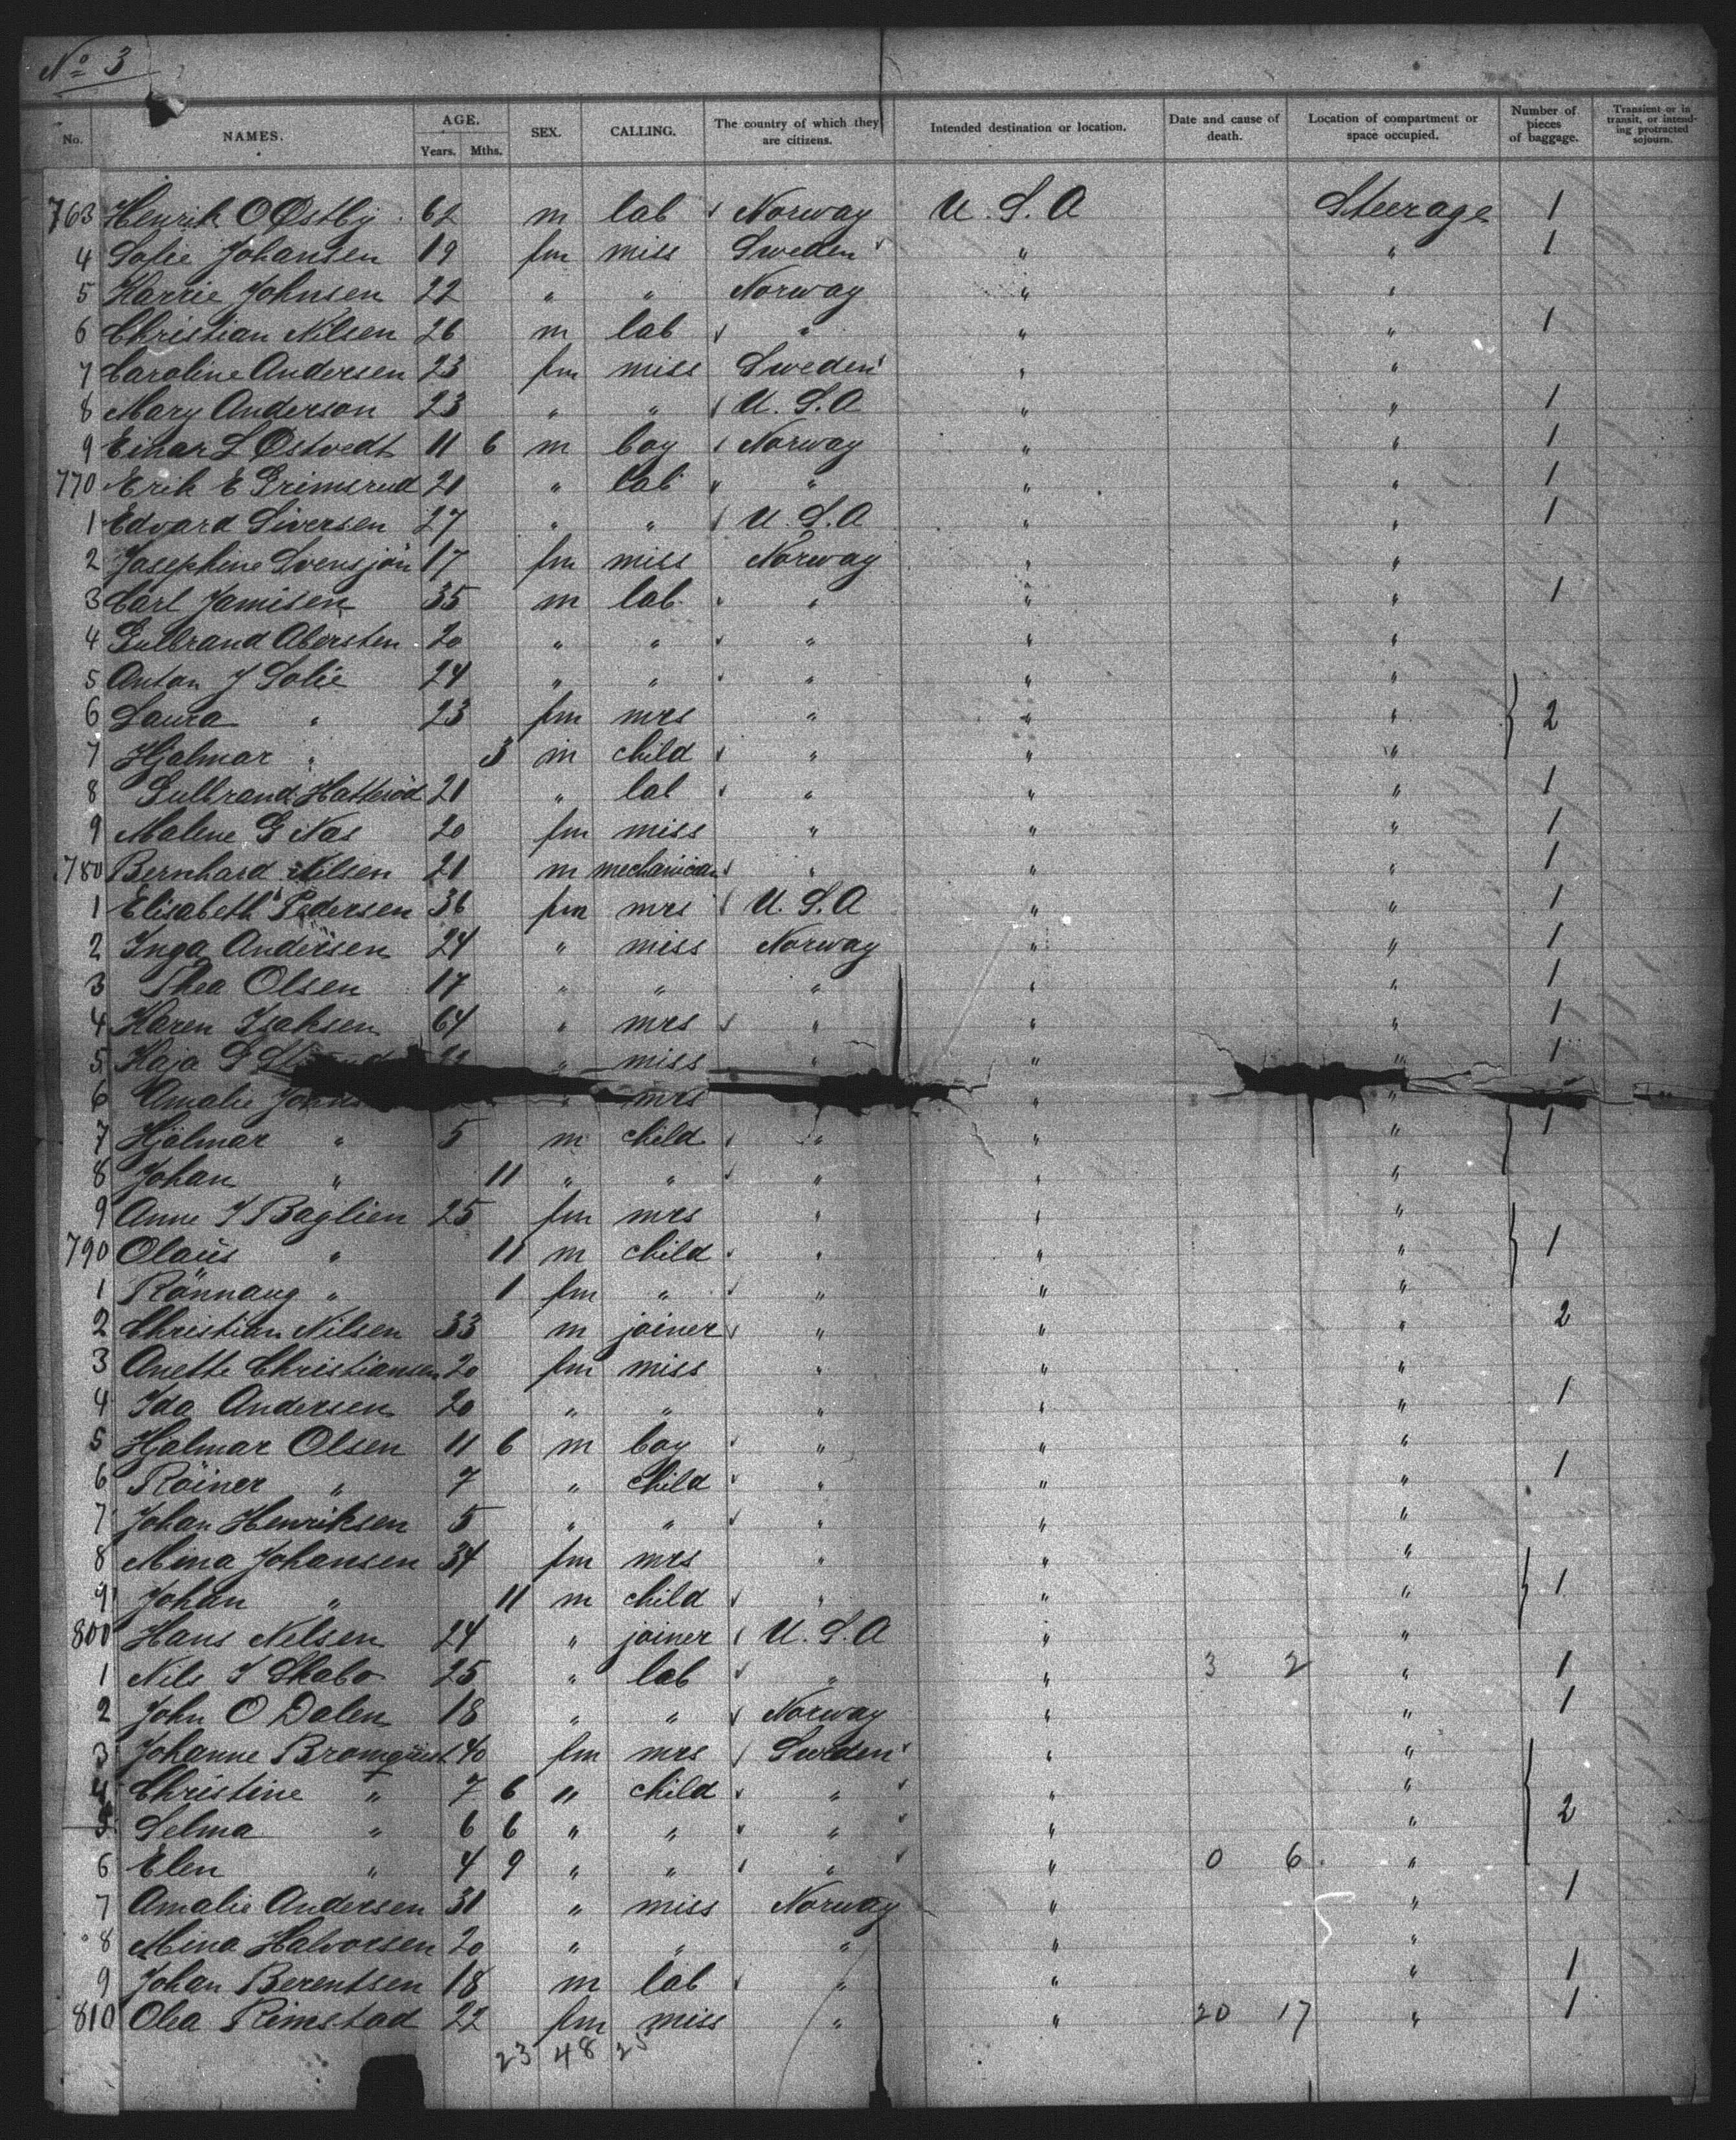 No 3
No. NAMES. AGE. Years. Mths. SEX. CALLING. The country of which they are citizens. Intended destination or location. Date and cause of death. Location of compartment or space occupied. Number of pieces of baggage. Transient or in transit, or intending protracted sojourn.
763 Henrik O Østby 62 m lab Norway U.S.A Steerage 1
4 Sofie Johansen 19 fm miss Sweden " " 1
5 Karrie Johnsen 22 " " Norway " "
6 Christian Nilsen 26 m lab " " " 1
7 Caroline Andersen 23 fm miss Sweden " "
8 Mary Anderson 23 " " U.S.A " " 1
9 Einar L Østvedt 11 6 m boy Norway " " 1
770 Erik E Grimsrud 21 " lab " " " 1
1 Edvard Siversen 27 " " U.S.A " " 1
2 Josephine Svensjön 17 fm miss Norway " "
3 Carl Jamisen 35 m lab " " " 1
4 Gulbrand Abersten 20 " " " " "
5 Anton J Solie 24 " " " " "
6 Laura " 23 fm mrs " " " 2
7 Hjalmar " 3 m child " " "
8 Gulbrand Hatterød 21 " lab " " " 1
9 Malene G Nas 20 fm miss " " " 1
780 Bernhard Nilsen 21 m mechanician " " " 1
1 Elisabeth Pedersen 36 fm mrs U.S.A " " 1
2 Inga Andersen 24 " miss Norway " " 1
3 Thea Olsen 17 " " " " " 1
4 Karen Isaksen 64 " mrs " " " 1
5 Kaja G " miss " " " 1
6 Amalie " mrs " "
7 Hjalmar " 5 m child " " " 1
8 Johan " 11 " " " " "
9 Anne I Baglien 25 fm mrs " " "
790 Olaus " 11 m child " " " 1
1 Rönnaug " 1 fm " " " "
2 Christian Nilsen 33 m joiner " " " 2
3 Anette Christiansen 20 fm miss " " "
4 Ida Andersen 20 " " " " " 1
5 Hjalmar Olsen 11 6 m boy " " "
6 Röiner " 7 " child " " " 1
7 Johan Henriksen 5 " " " " "
8 Mina Johansen 34 fm mrs " " "
9 Johan " 11 m child " " " 1
800 Hans Nilsen 24 " joiner U.S.A " "
1 Nils I Skabo 25 " lab " " 3 2 " 1
2 John O Dalen 18 " " Norway " " 1
3 Johanne Bromquist 40 fm mrs Sweden " "
4 Christine " 7 6 " child " " "
5 Selma " 6 6 " " " " " 2
6 Elen " 4 9 " " " " 0 6 "
7 Amalie Andersen 31 " miss Norway " " 1
8 Mina Halvorsen 20 " " " " "
9 Johan Berentsen 18 m lab " " " 1
810 Olea Rimstad 22 fm miss " " 20 17 " 1
23 48 25